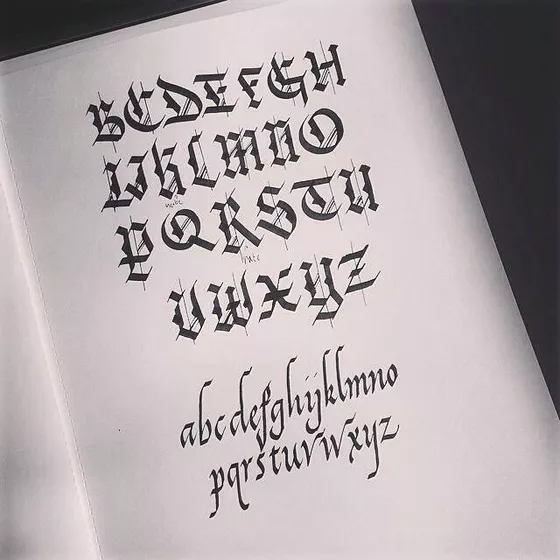 BCDEFGH
IJKLMNO
PQRSTU
VWXYZ
abcdefghijklmno
pqrstuvwxyz